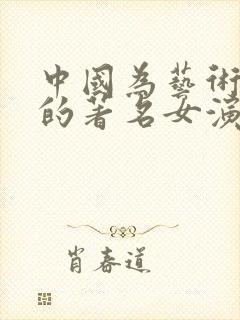 中國為藝術
的著名女演
肖春道